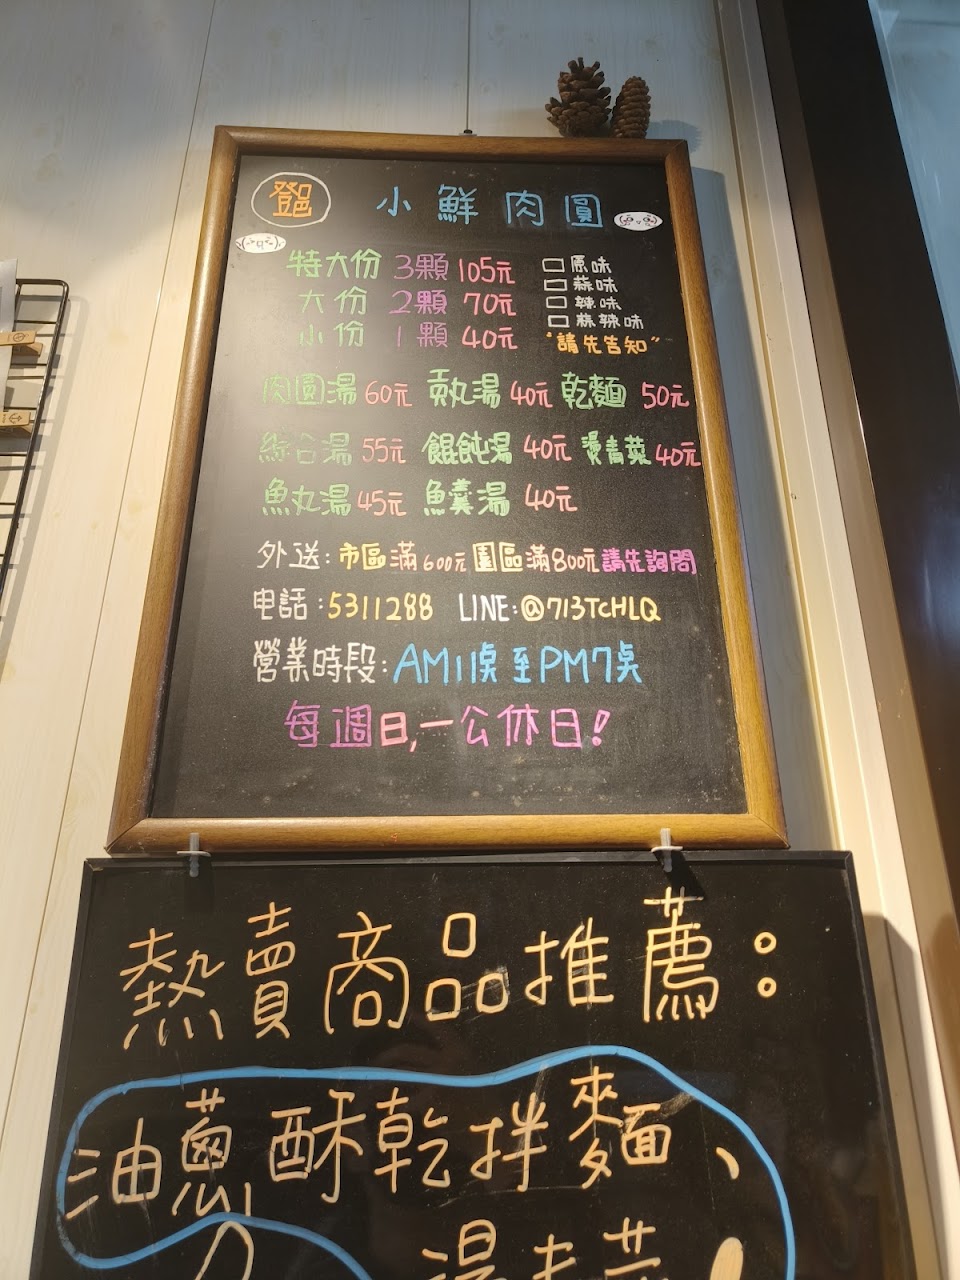 小鮮肉圓
特大份 3顆 105元 □原味
□蒜味
大份 2顆 70元 □辣味
□蒜辣味
小份 1顆 40元 "請先告知"
肉圓湯 60元 貢丸湯 40元 乾麵 50元
綜合湯 55元 餛飩湯 40元 燙青菜 40元
魚丸湯 45元 魚羹湯 40元
外送:市區滿600元 園區滿800元請先詢問
电話:5311288 LINE:@713TCHLQ
營業時段:AM11桌至PM7桌
每週日,一公休日!
熱賣商品推薦:
油蔥酥乾拌麵、
湯青菜!